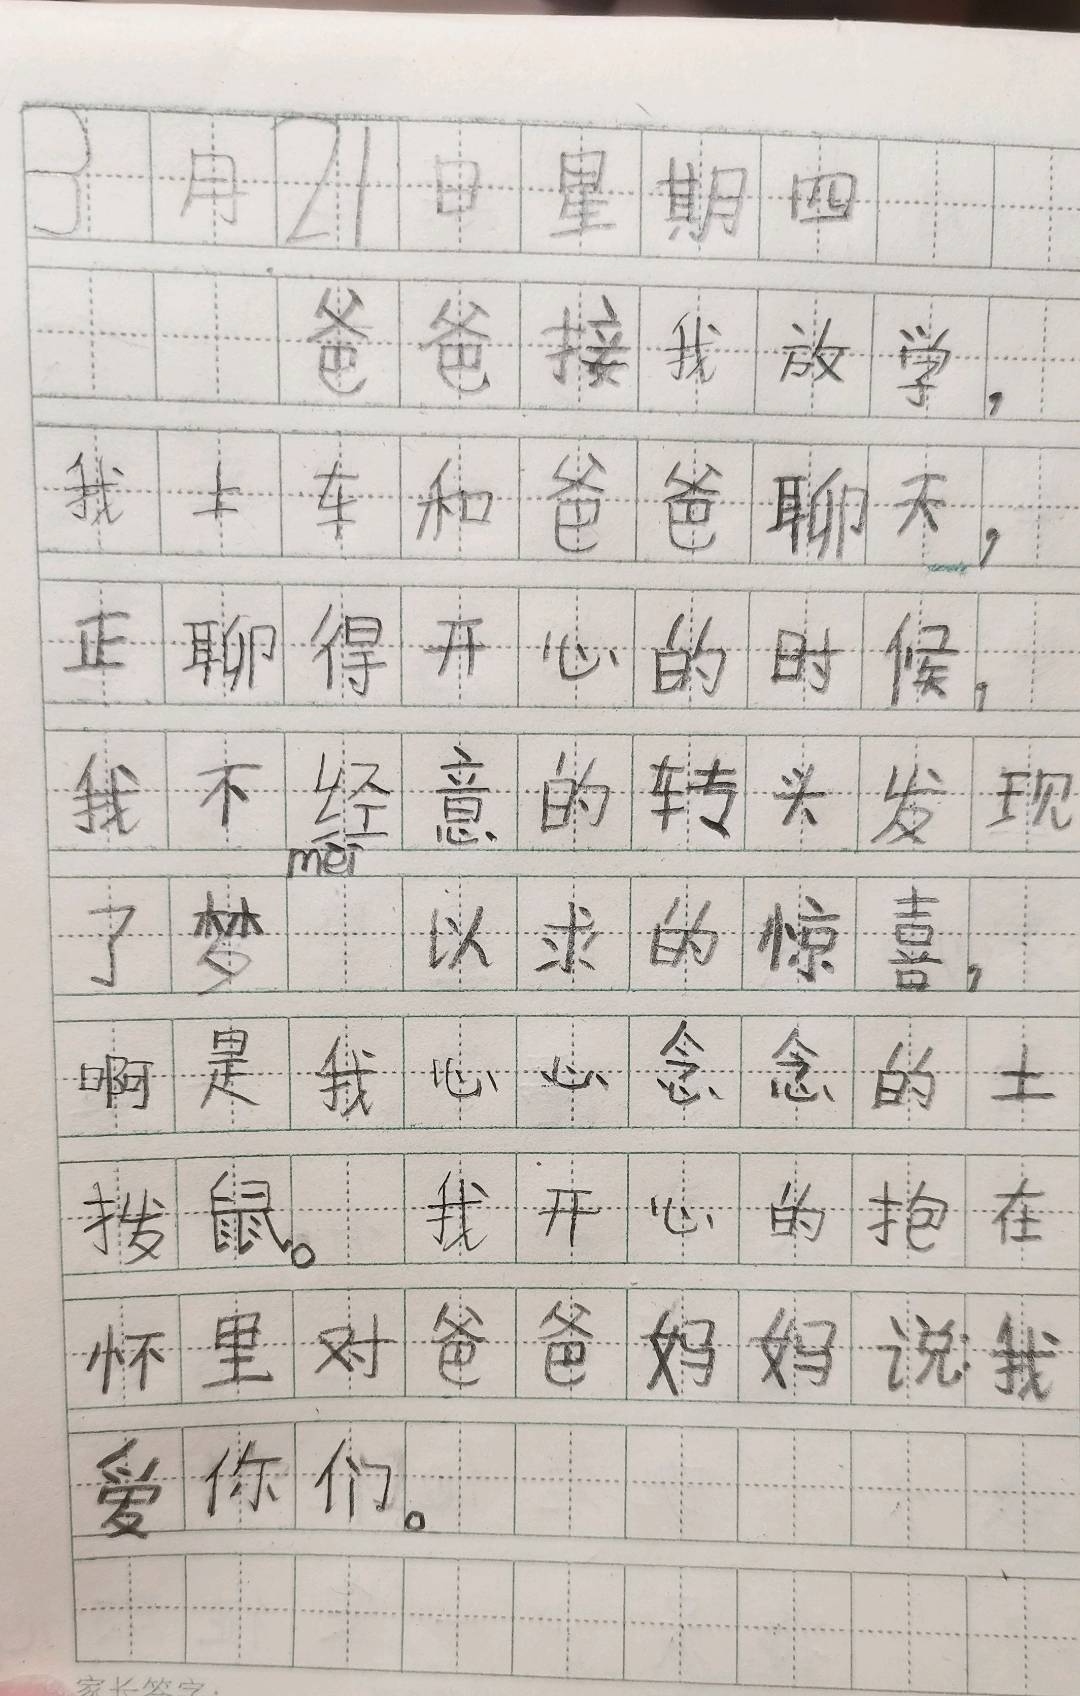 3月21日星期四
爸爸接我放学,
我上车和爸爸聊天,
正聊得开心的时候,
我不经意的转头发现
mèi
了梦 以求的惊喜,
啊是我心心念念的土
拨鼠。 我开心的抱在
怀里对爸爸妈妈说我
爱你们。
家长签字: